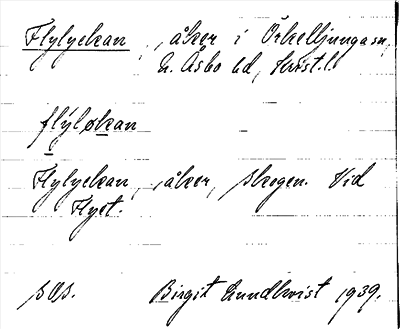 Flylyckan, åker i Örkelljunga sn,
N. Åsbo hd, Krist. l.
flýløkan
Flylyckan, åker, skogen. Vid
Flyet.
sås. Birgit Lundkvist 1939.